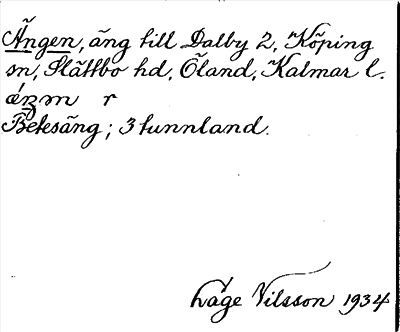 Ängen, äng till Dalby 2, Köping
sn, Slättbo hd, Öland, Kalmar l.
Betesäng; 3 tunnland.
Låge Nilsson 1934